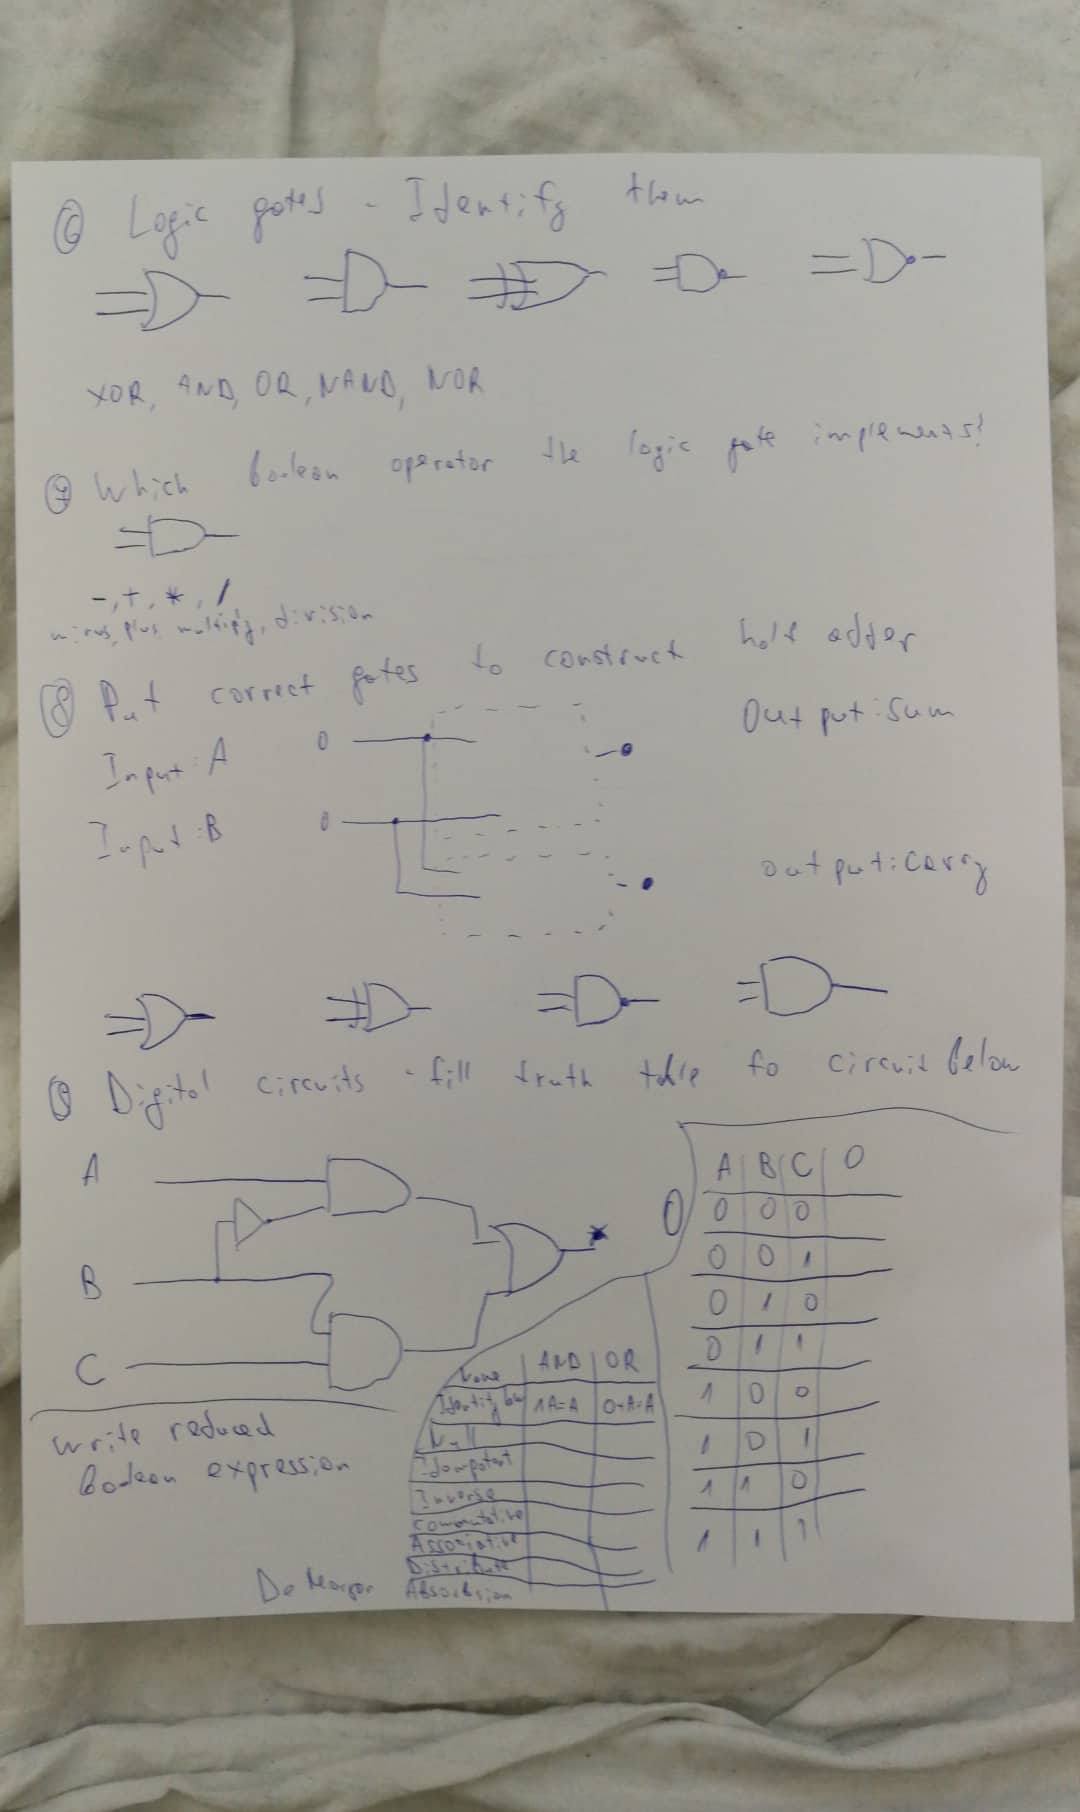 6 Logic gates - Identify them
XOR, AND, OR, NAND, NOR
7 Which boolean operator the logic gate implements?
-, +, *, /
minus, plus, multiply, division
8 Put correct gates to construct half adder
Output: Sum
Input: A 0
Input: B 0
output: carry
9 Digital circuits - fill truth table fo circuit below
A
B
C
A B C O
0 0 0
0 0 1
0 1 0
0 1 1
1 0 0
1 0 1
1 1 0
1 1 1
Write reduced
boolean expression
AND OR
Identity law 1A=A 0+A=A
Null
Idempotent
Inverse
Commutative
Associative
Distribute
Absorbsion
De Morgan